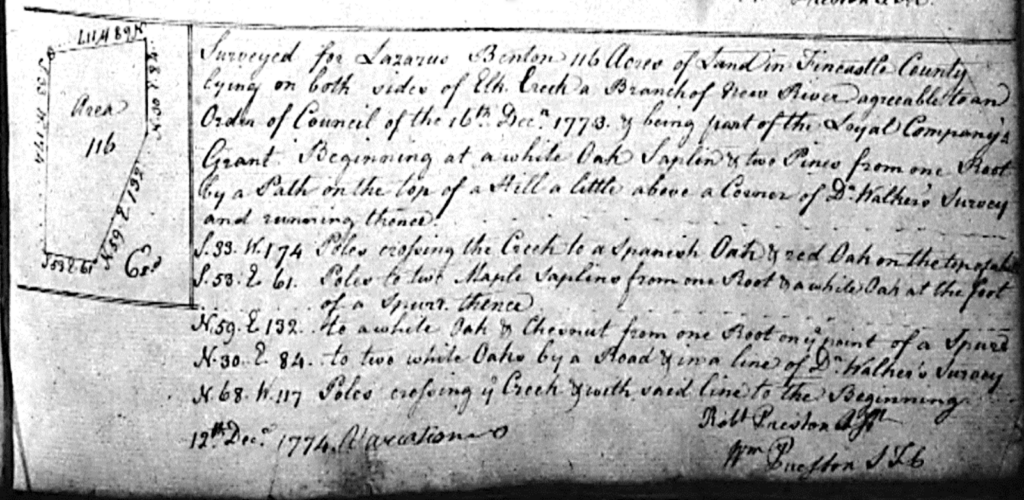 N 68 W 117
S 33 W 174
Area
116
N 30 E 84
N 59 E 132
S 53 E 61
Surveyed for Lazarus Benton 116 Acres of Land in Fincastle County
lying on both sides of Elk Creek a Branch of New River agreeable to an
Order of Council of the 16th Decr. 1773. & being part of the Loyal Company's
Grant. Beginning at a white Oak Saplin & two Pines from one Root
by a Path on the top of a Hill a little above a Corner of Dr. Walker's Survey
and running thence
S. 33. W. 174 Poles crossing the Creek to a Spanish Oak & red Oak on the top of a
S. 53. E 61. Poles to two Maple Saplins from one Root & a white Oak at the foot
of a Spurr. thence
N. 59. E 132. to a white Oak & Chesnut from one Root on ye. point of a Spurr
N. 30. E. 84. to two white Oaks by a Road & in a line of Dr. Walker's Survey
N. 68. W. 117 Poles crossing ye Creek & with said line to the Beginning
Robt Preston Asst
12th. Decr. 1774. Variation
Wm Preston S F C